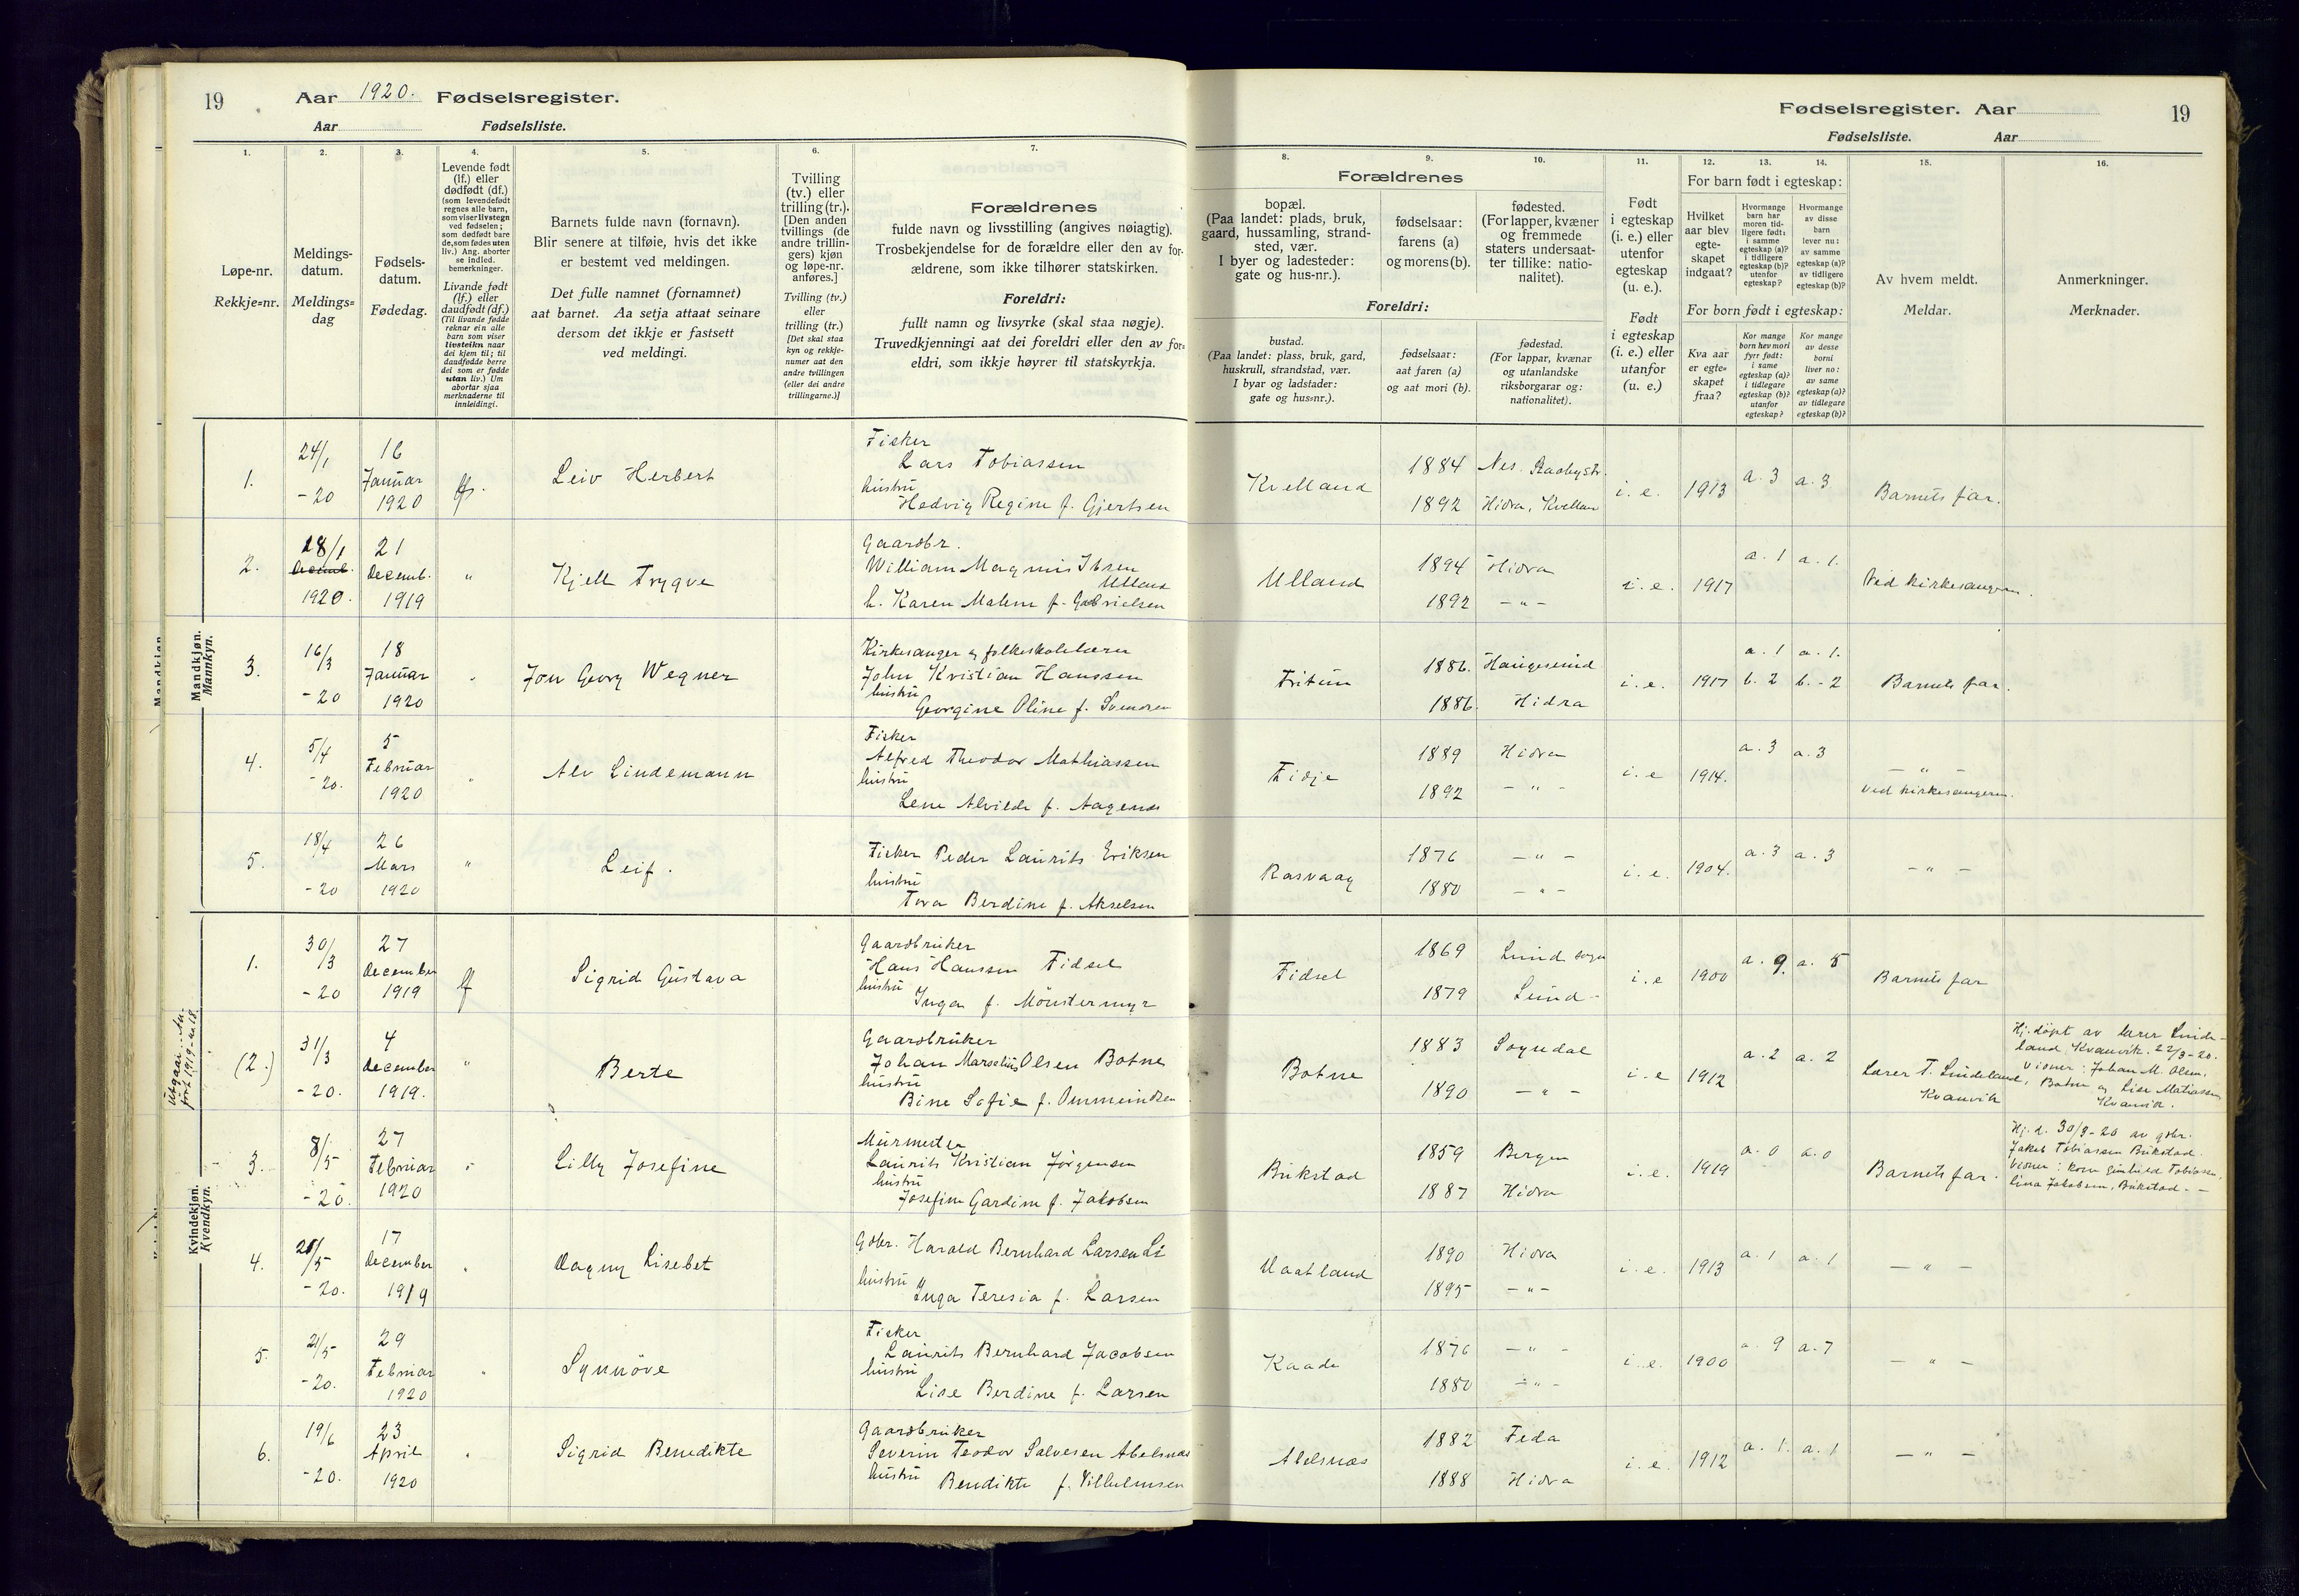 19
Aar 1920. Fødselsregister.
Aar Fødselsliste.
1.
2.
3.
4.
5.
6.
7.
Løpe-nr.
Rekkje=nr.
Meldings-
datum.
Meldings=
dag
Fødsels-
datum.
Fødedag.
Levende født
(lf.) eller
dødfødt (df.)
(som levendefødt
regnes alle barn,
som viser livstegn
ved fødselen;
som dødfødt bare
de, som fødes uten
liv.) Ang. aborter
se indled.
bemerkninger.
Livande født
(lf.) eller
daudfødt (df.)
(Til livande fødde
reknar ein alle
barn som viser
livsteikn naar
dei kjem til; til
daudfødde berre
dei som er fødde
utan liv.) Um
abortar sjaa
merknaderne til
innleidingi.
Barnets fulde navn (fornavn).
Blir senere at tilføie, hvis det ikke
er bestemt ved meldingen.
Det fulle namnet (fornamnet)
aat barnet. Aa setja attaat seinare
dersom det ikkje er fastsett
ved meldingi.
Tvilling
(tv.) eller
trilling (tr.).
[Den anden
tvillings (de
andre trillin-
gers) kjøn
og løpe-nr.
anføres.]
Tvilling (tv.)
eller
trilling (tr.)
[Det skal staa
kyn og rekkje-
numer aat den
andre tvillingen
(eller dei andre
trillingarne.)]
Forældrenes
fulde navn og livsstilling (angives nøiagtig).
Trosbekjendelse for de forældre eller den av for-
ældrene, som ikke tilhører statskirken.
Foreldri:
fullt namn og livsyrke (skal staa nøgje).
Truvedkjenningi aat dei foreldri eller den av for-
eldri, som ikkje høyrer til statskyrkja.
Mandkjøn.
Mannkyn.
1.
24/1
-20
16
Januar
1920
lf.
Leiv Herbert
Fisker
Lars Tobiassen
hustru
Hedvig Regine f. Gjertsen
2.
28/1
Decemb.
1920.
21
Decemb.
1919
"
Kjell Trygve
Gaardbr.
William Magnus Ibsen
Ulland
h. Karen Malene f. Gabrielsen
3.
16/3
-20
18
Januar
1920
"
Jon Georg Wegner
Kirkesanger og folkeskolelærer
John Kristian Hanssen
hustru
Georgine Oline f. Svendsen
4.
5/4
-20.
5
Februar
1920
"
Alv Lindemann
Fisker
Alfred Theodor Mathiassen
hustru
Lene Alvilde f. Aagenæs
5.
18/4
-20
26
Mars
1920
"
Leif.
Fisker Peder Laurits Eriksen
hustru
Tora Berdine f. Akselsen
Kvindekjøn.
Kvendkyn.
1.
30/3
-20
27
December
1919
lf
Sigrid Gustava
Gaardbruker
Hans Hanssen Fidsel
hustru
Inga f. Mönstermyr
Utgaar.
ført 1919-nr. 18.
(2.)
31/3
-20.
4
December
1919.
"
Berte
Gaardbruker
Johan Marselius Olsen Botne
hustru
Bine Sofie f. Ommundsen
3.
8/5
-20.
27
Februar
1920
"
Lilly Josefine
Murmester
Laurits Kristian Jørgensen
hustru
Josefine Gardine f. Jakobsen
4.
20/5
-20.
17
December
1919
"
Dagny Lisebet
Gdbr. Harald Bernhard Larsen Li
hustru
Inga Teresia f. Larsen
5.
21/5
-20.
29
Februar
1920
"
Synnöve
Fisker
Laurits Bernhard Jacobsen
hustru
Lise Berdine f. Larsen
6.
19/6
-20.
23
April
1920
"
Sigrid Benedikte
Gaardbruker
Severin Teodor Salvesen Abelsnæs
hustru
Benedikte f. Vilhelmsen
Fødselsregister. Aar
19
Fødselsliste. Aar
8.
9.
10.
11.
12.
13.
14.
15.
16.
Forældrenes
bopæl.
(Paa landet: plads, bruk,
gaard, hussamling, strand-
sted, vær.
I byer og ladesteder:
gate og hus-nr.).
fødselsaar:
farens (a)
og morens (b).
fødested.
(For lapper, kvæner
og fremmede
staters undersaat-
ter tillike: natio-
nalitet).
Foreldri:
bustad.
(Paa landet: plass, bruk, gard,
huskrull, strandstad, vær.
I byar og ladstader:
gate og hus=nr.).
fødselsaar:
aat faren (a)
og aat mori (b).
fødestad.
(For lappar, kvænar
og utanlandske
riksborgarar og:
nationalitet).
Født
i egteskap
(i. e.) eller
utenfor
egteskap
(u. e.).
Født
i egteskap
(i. e.) eller
utanfor
(u. e.)
For barn født i egteskap:
Hvilket
aar blev
egte-
skapet
indgaat?
Hvormange
barn har
moren tid-
ligere født:
i samme
egteskap (a)?
i tidligere
egteskap (b)?
utenfor
egteskap?
Hvormange
av disse
barn
lever nu:
av samme
egteskap (a)?
av tidligere
egteskap (b)?
For born født i egteskap:
Kva aar
er egte=
skapet
fraa?
Kor mange
born hev mori
fyrr født:
i same
egteskap (a)?
i tidlegare
egteskap (b)?
utanfor
egteskap?
Kor mange
av desse
borni
liver no:
av same
egteskap (a)?
av tidlegare
egteskap (b)?
Av hvem meldt.
Meldar.
Anmerkninger.
Merknader.
Kvelland
1884
1892
Nes. Raabygdr.
Hidra, Kvellan
i. e.
1913
a. 3
a. 3
Barnets far.
Ulland
1894
1892
Hidra
- " -
i. e.
1917
a. 1
a. 1.
Ved kirkesangeren.
Fritun
1886.
1886.
Haugesund
Hidra
i. e.
1917
a. 1
b. 2
a. 1.
b. - 2
Barnets far.
Eidje
1889
1892
Hidra
- " -
i. e
1914.
a. 3
a. 3
- " -
ved kirkesangeren.
Rasvaag
1876
1880
- " -
- " -
i. e.
1904.
a. 3
a. 3
- " -
Fidsel
1869
1879
Lund sogn
Lund -
i. e
1900
a. 9.
a. 5
Barnets far
Botne
1883
1890
Sogndal
- " -
i. e
1912
a. 2
a. 2
Lærer T. Lindeland,
Kvanvik
Hj. döpt av lærer Linde-
land, Kvanvik. 22/3-20.
Vidner: Johan M. Olsen,
Botne og Lise Matiassen,
Kvanvik.
Bukstad
1859
1887
Bergen
Hidra
i. e.
1919
a. 0
a. 0
Barnets far.
Hj. d. 30/3-20 av gdbr.
Jakob Tobiassen Bukstad.
Vidner: kone Gunhild Tobiassen,
Lina Jakobsen, Bukstad. -
Vaatland
1890
1895
Hidra
- " -
i. e.
1913
a. 1
a. 1
- " -
Kaade
1876
1880
- " -
- " -
i. e.
1900
a. 9
a. 7
- " -
Abelsnæs
1882
1888
Feda
Hidra
i. e.
1912
a. 1.
a. 1
- " -